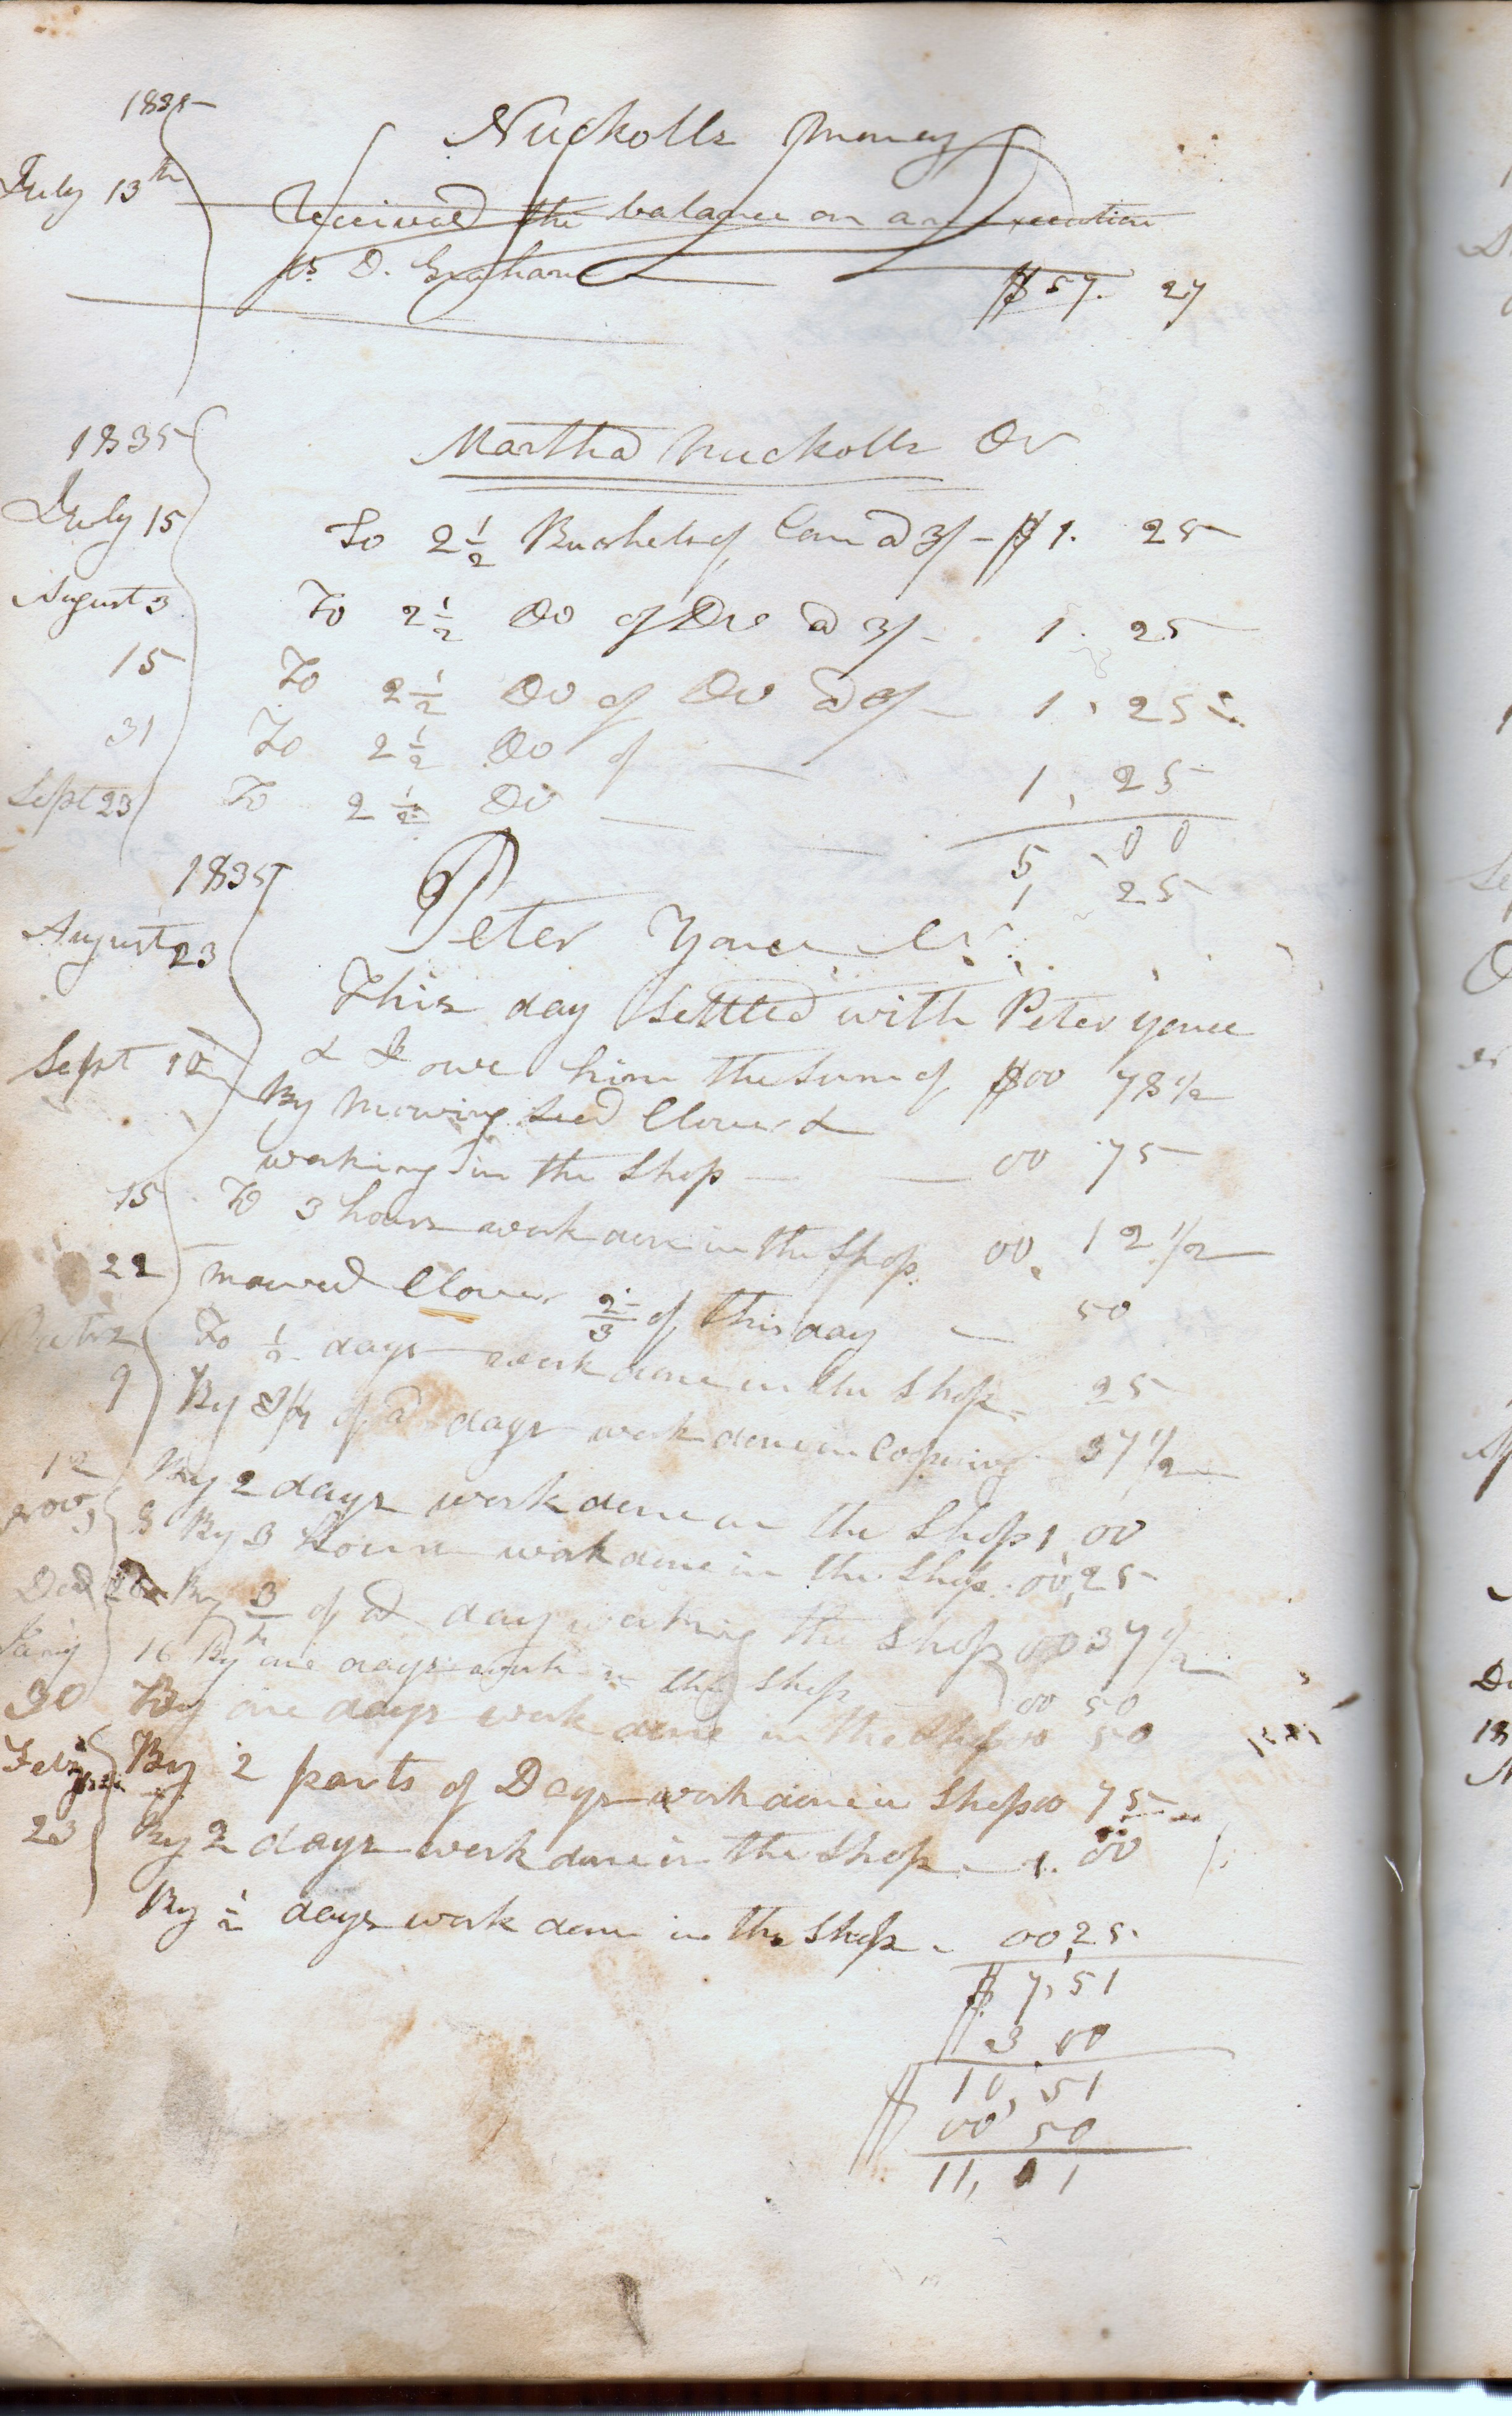 1835
Nuckolls money
July 13th Received the balance on an Execution
vs D. Graham $57. 27
1835
Martha Nuckolls Dr
July 15 To 2 1/2 Bushels of Corn @ 3/ - $1. 25
August 3 To 2 1/2 Do of Do @ 3/ - 1. 25
15 To 2 1/2 Do of Do @ 3/ - 1. 25
31 To 2 1/2 Do of — 1, 25
Sept 23 To 2 1/2 Do — —
5, 00
1 25
1835
Peter Yonce Cr.
August 23 This day Settled with Peter Yonce
& I owe him the sum of $00 78 1/2
Sept 10 By Mowing Seed Clover &
working in the Shop — — 00 75
15 To 3 hours work done in the Shop 00. 12 1/2
22 mowed Clover 2/3 of this day — 50
To 1/2 days work done in the Shop - 25
9 By 3/4 of a days work done in 37 1/2
12 By 2 days work done in the Shop 1. 00
Nov 8 By 3 hours work done in the Shop. 00,25
Dec By 3/4 of a day working the Shop 00 37 1/2
Jany 16 By one days work in the Shop — 00 50
30 By one days work done in the Shop 00 50
Feby By 2 parts of Days work done in Shop 00 75
23 By 2 days work done in the Shop — 1. 00
By 1/2 days work done in the Shop - 00,25
$ 7,51
3.00
$ 10,51
00 50
11,01